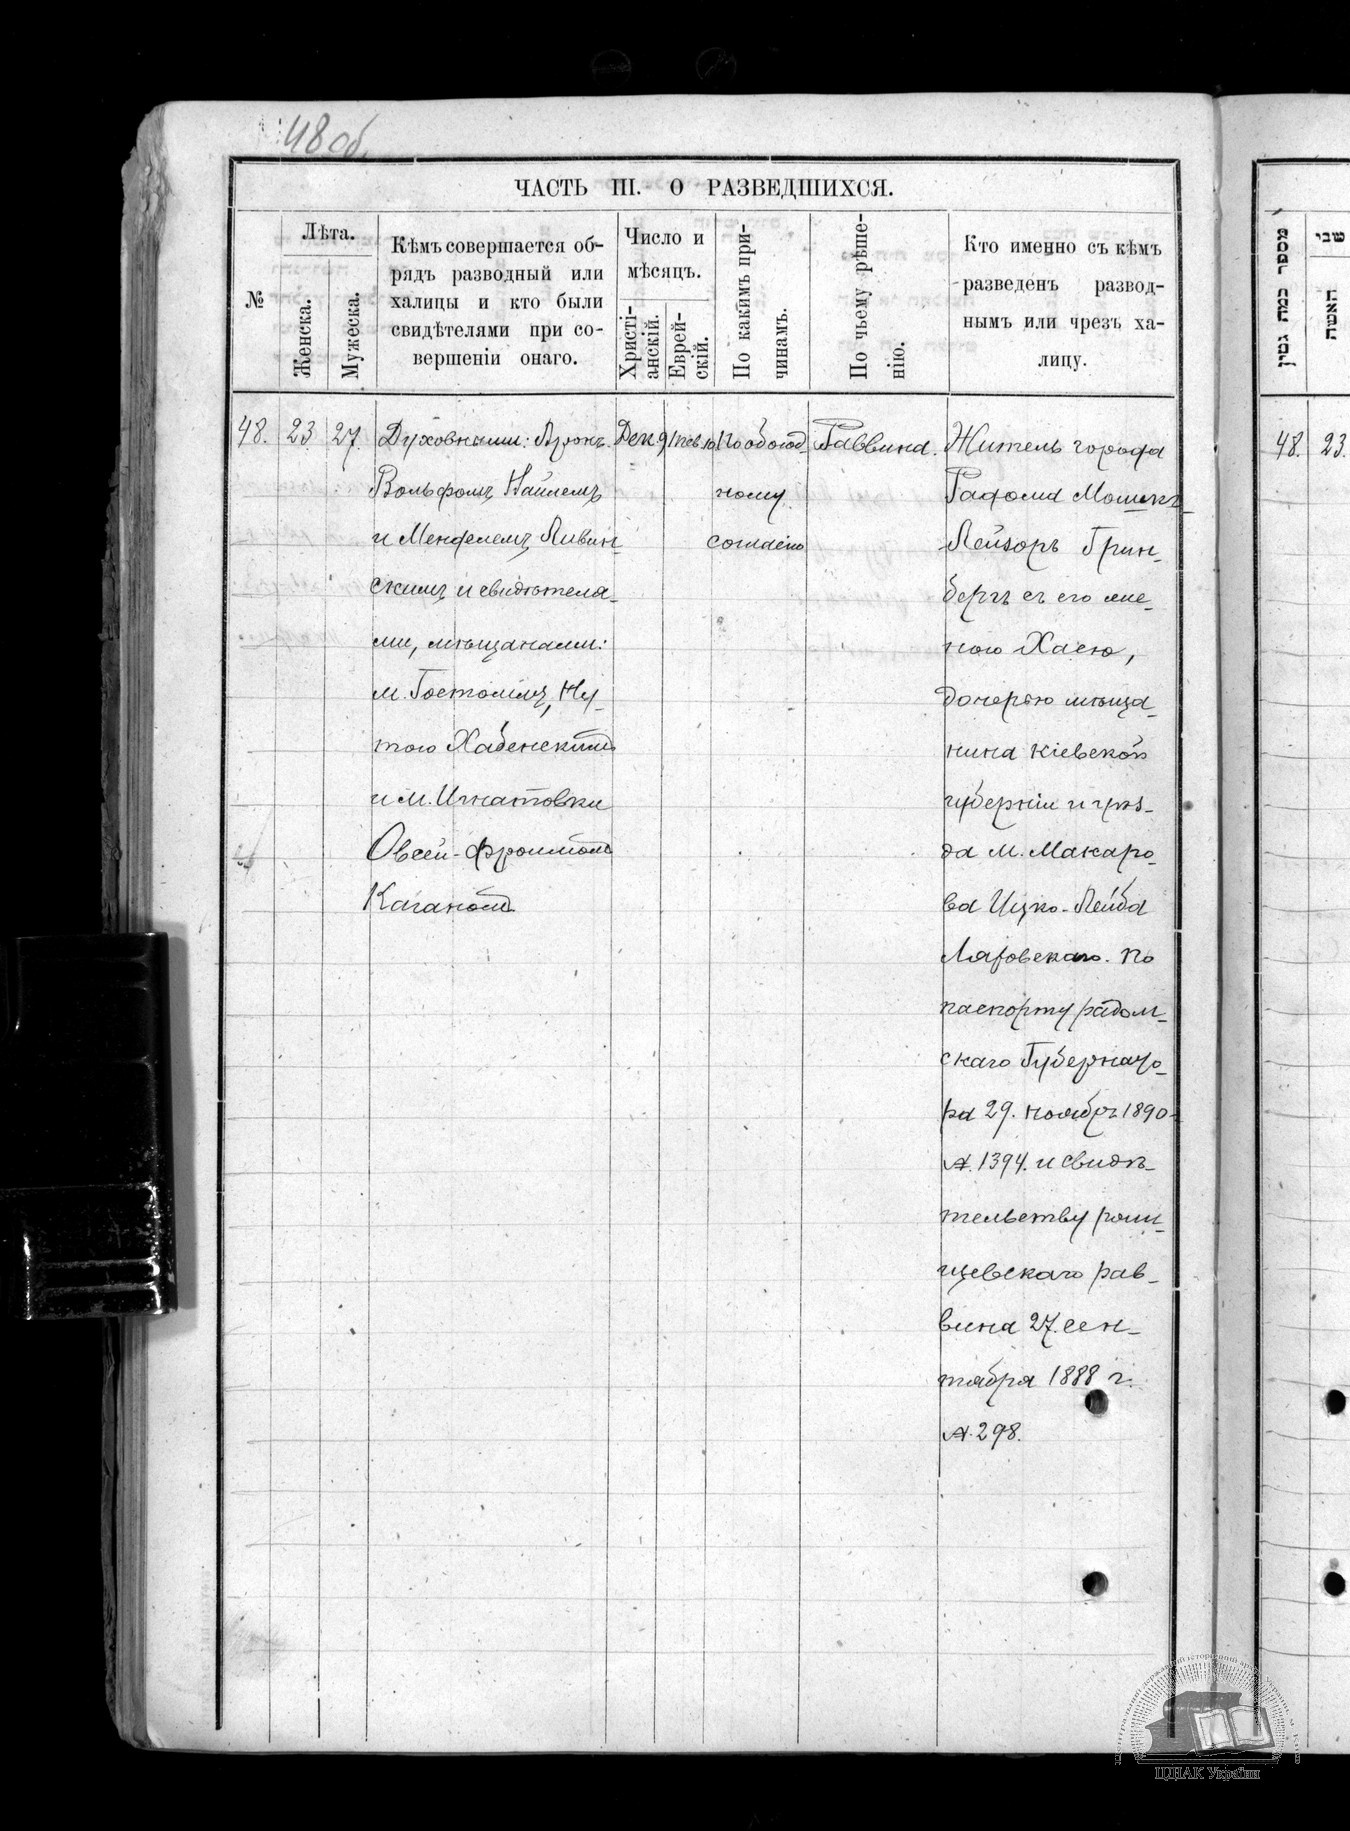 48 об.
ЧАСТЬ III. О РАЗВЕДШИХСЯ.
№
Лѣта.
Женска.
Мужеска.
Кѣмъ совершается об-
рядъ разводный или
халицы и кто были
свидѣтелями при со-
вершеніи онаго.
Число и
мѣсяцъ.
Христі-
анскій.
Еврей-
скій.
По какимъ при-
чинамъ.
По чьему рѣше-
нію.
Кто именно съ кѣмъ
разведенъ развод-
нымъ или чрезъ ха-
лицу.
48. 23 27.
Духовными: Арономъ
Вольфомъ
и Менделемъ Ливин-
скимъ и свидѣтеля-
ми, мѣщанами:
м. Гостомля, Ну-
тою Хабенскимъ
и м. Игнатовки
Овсей-Фроимомъ
Каганомъ
Дек 9
Тев 10
По обоюд-
ному
согласію
Раввина.
Житель города
Радома Мошекъ-
Лейзоръ Грин-
бергъ съ его же-
ною Хасею,
дочерью мѣща-
нина Кіевской
губерніи и уѣз-
да м. Макаро-
ва Ицко-Лейба
По
паспорту радом-
скаго Губернато-
ра 29. ноября 1890
№. 1394. и свидѣ-
тельству
щевскаго рав-
вина 27. сен-
тября 1888 г.
№. 298.
מספר כמה גטין
שני
האשה
48. 23.
ЦДІАК України